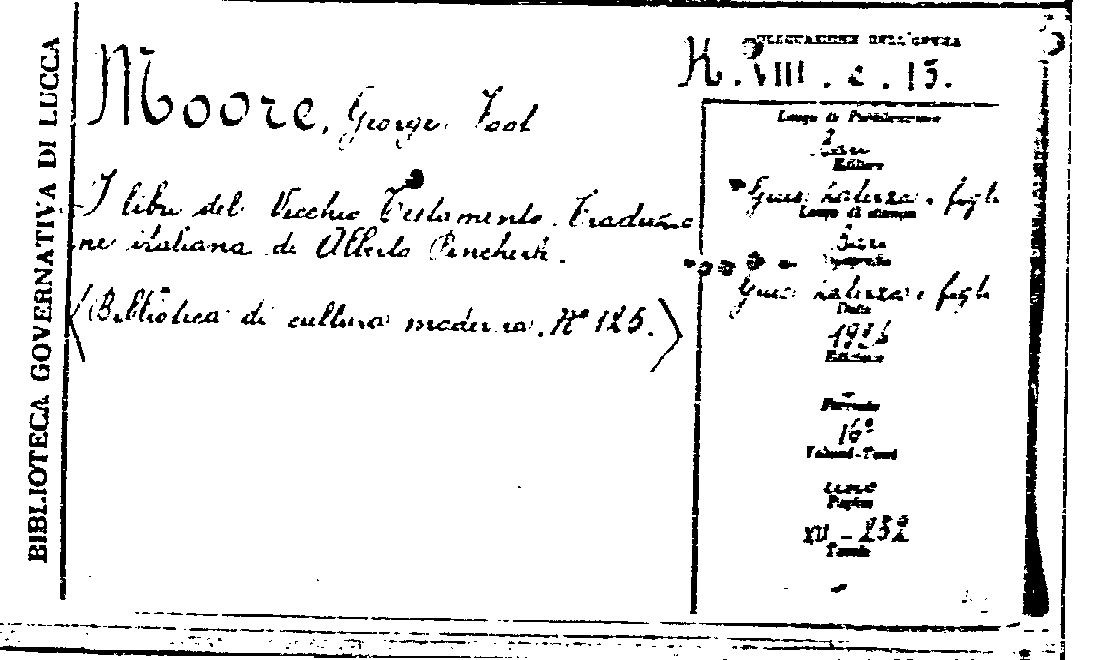 BIBLIOTECA GOVERNATIVA DI LUCCA
Moore, George Foot
I libri del Vecchio Testamento. Traduzio
ne italiana di Alberto Pincherle.
(Biblioteca di cultura moderna. N° 125.)
COLLOCAZIONE DELL'OPERA
K. VIII. e. 15.
Luogo di Pubblicazione
Bari
Editore
Gius. Laterza e figli
Luogo di stampa
Bari
Tipografia
Gius. Laterza e figli
Data
Edizione
Formato
16°
Volumi-Tomi
uno
Pagine
232
Tavole